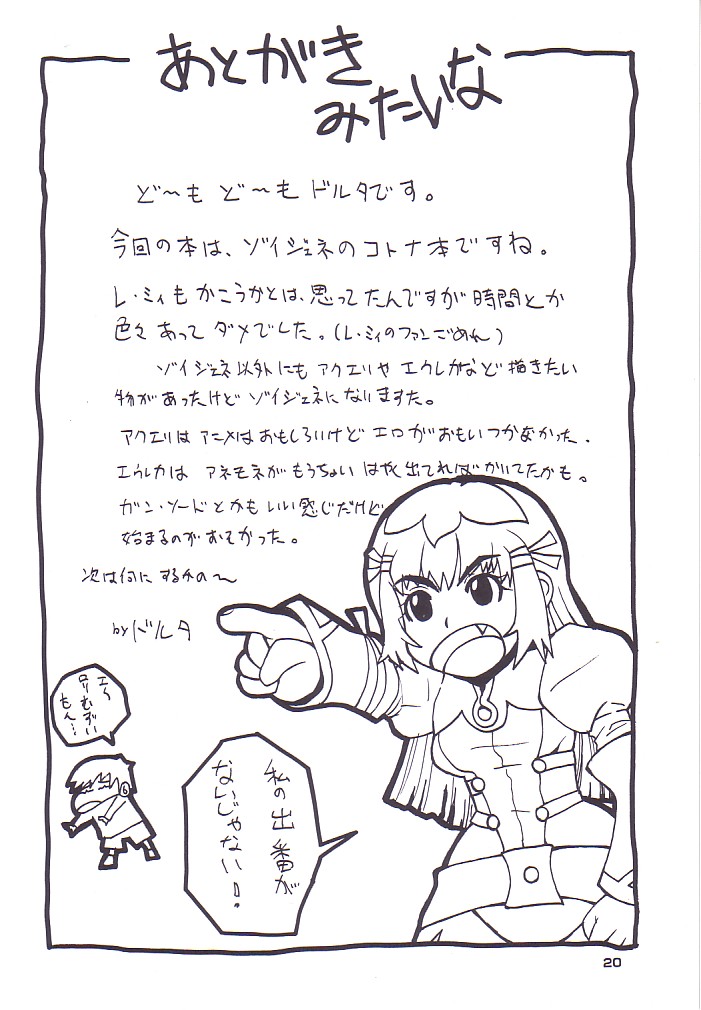 あとがき
みたいな
ど〜も ど〜も ドルタです。
今回の本は、ゾイジェネのコトナ本ですね。
レ・ミィもかこうかとは、思ってたんですが時間とか
色々あってダメでした。(レ・ミィのファンごめん)
ゾイジェネ以外にもアクエリやエウレカなど描きたい
物があったけどゾイジェネになりますた。
アクエリはアニメはおもしろいけどエロがおもいつかなかった.
エウレカは アネモネがもうちょいはやく出てればかいてたかも。
ガン・ソードとかもいい感じだけど
始まるのがおそかった。
次は何にするかの〜
byドルタ
エ〜
ロリむずい
もん…
私の出番が
ないじゃない!
20